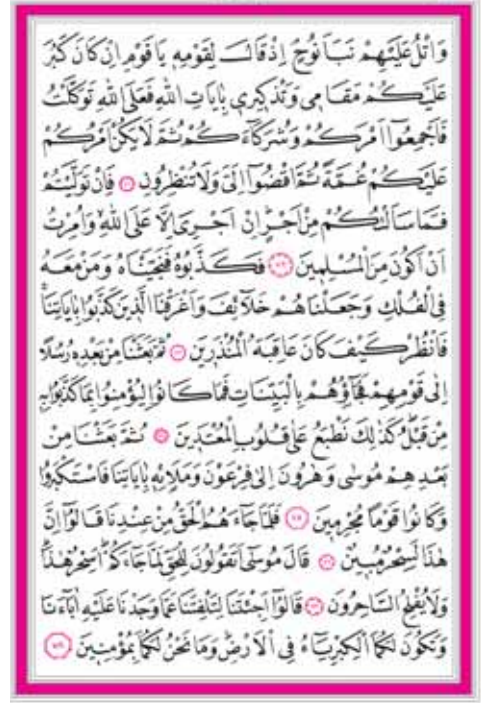 وَاتْلُ عَلَيْهِمْ نَبَاَ نُوحٍ اِذْ قَالَ لِقَوْمِهٖ يَا قَوْمِ اِنْ كَانَ كَبُرَ
عَلَيْكُمْ مَقَامٖى وَتَذْكٖيرٖى بِاٰيَاتِ اللّٰهِ فَعَلَى اللّٰهِ تَوَكَّلْتُ
فَاَجْمِعُوا اَمْرَكُمْ وَشُرَكَاءَكُمْ ثُمَّ لَا يَكُنْ اَمْرُكُمْ
عَلَيْكُمْ غُمَّةً ثُمَّ اقْضُوا اِلَىَّ وَلَا تُنْظِرُونِ ﴿٧١﴾ فَاِنْ تَوَلَّيْتُمْ
فَمَا سَاَلْتُكُمْ مِنْ اَجْرٍ اِنْ اَجْرِىَ اِلَّا عَلَى اللّٰهِ وَاُمِرْتُ
اَنْ اَكُونَ مِنَ الْمُسْلِمٖينَ ﴿٧٢﴾ فَكَذَّبُوهُ فَنَجَّيْنَاهُ وَمَنْ مَعَهُ
فِى الْفُلْكِ وَجَعَلْنَاهُمْ خَلَائِفَ وَاَغْرَقْنَا الَّذٖينَ كَذَّبُوا بِاٰيَاتِنَا
فَانْظُرْ كَيْفَ كَانَ عَاقِبَةُ الْمُنْذَرٖينَ ﴿٧٣﴾ ثُمَّ بَعَثْنَا مِنْ بَعْدِهٖ رُسُلًا
اِلٰى قَوْمِهِمْ فَجَاؤُهُمْ بِالْبَيِّنَاتِ فَمَا كَانُوا لِيُؤْمِنُوا بِمَا كَذَّبُوا بِهٖ
مِنْ قَبْلُ كَذٰلِكَ نَطْبَعُ عَلٰى قُلُوبِ الْمُعْتَدٖينَ ﴿٧٤﴾ ثُمَّ بَعَثْنَا مِنْ
بَعْدِهِمْ مُوسٰى وَهٰرُونَ اِلٰى فِرْعَوْنَ وَمَلَائِهٖ بِاٰيَاتِنَا فَاسْتَكْبَرُوا
وَكَانُوا قَوْمًا مُجْرِمٖينَ ﴿٧٥﴾ فَلَمَّا جَاءَهُمُ الْحَقُّ مِنْ عِنْدِنَا قَالُوا اِنَّ
هٰذَا لَسِحْرٌ مُبٖينٌ ﴿٧٦﴾ قَالَ مُوسٰى اَتَقُولُونَ لِلْحَقِّ لَمَّا جَاءَكُمْ اَسِحْرٌ هٰذَا
وَلَا يُفْلِحُ السَّاحِرُونَ ﴿٧٧﴾ قَالُوا اَجِئْتَنَا لِتَلْفِتَنَا عَمَّا وَجَدْنَا عَلَيْهِ اٰبَاءَنَا
وَتَكُونَ لَكُمَا الْكِبْرِيَاءُ فِى الْاَرْضِ وَمَا نَحْنُ لَكُمَا بِمُؤْمِنٖينَ ﴿٧٨﴾